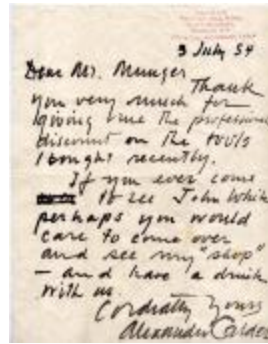 3 July 54
Dear Mr. Munger
Thank
you very much for
giving me the professional
discount on the tools
I bought recently.
If you ever come
to see John White
perhaps you would
care to come over
and see my "shop"
– and have a drink
with us.
Cordially Yours
Alexander Calder